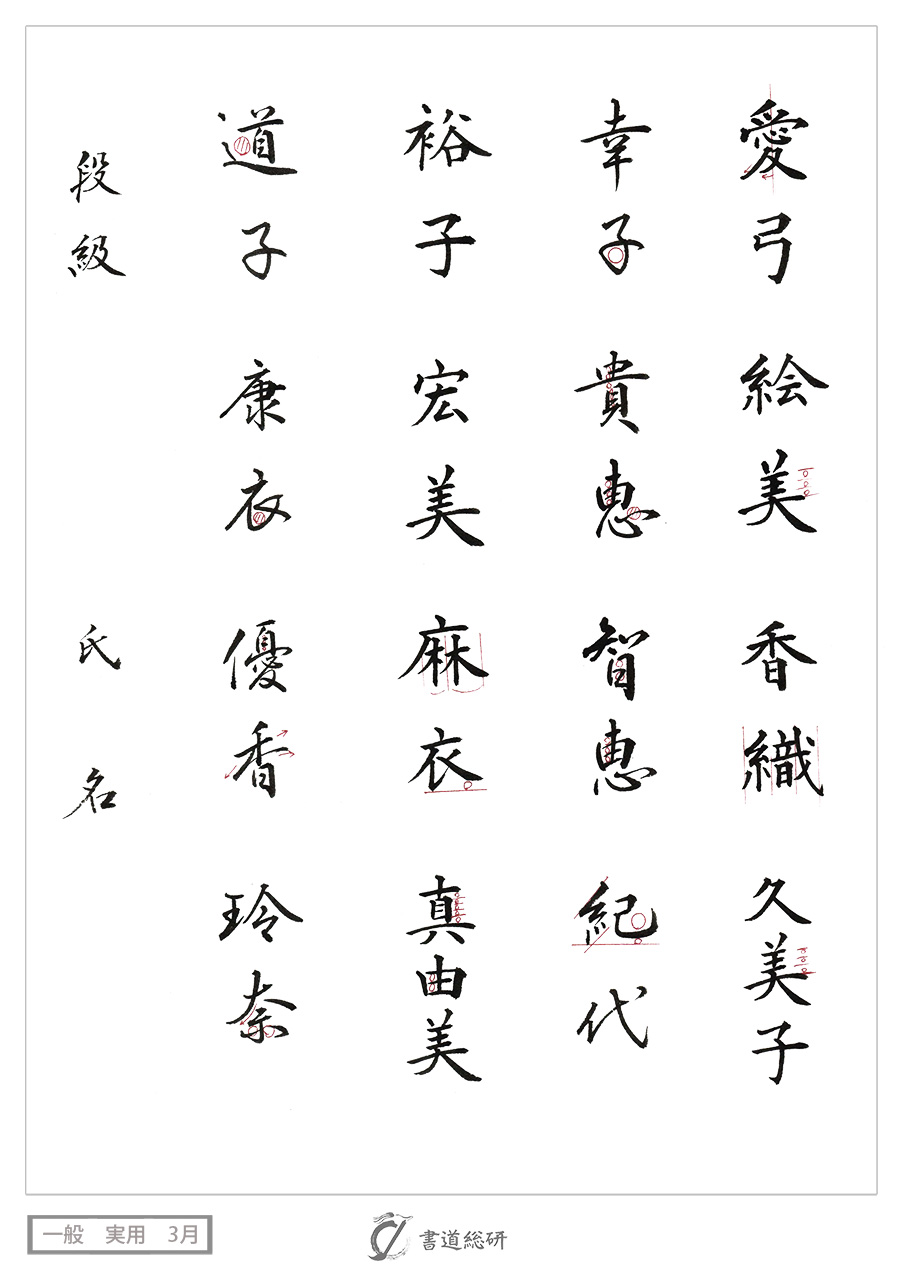 愛弓 絵美 香織 久美子
幸子 貴恵 智恵 紀代
裕子 宏美 麻衣 真由美
道子 康衣 優香 玲奈
段級 氏名
一般 実用 3月
書道総研